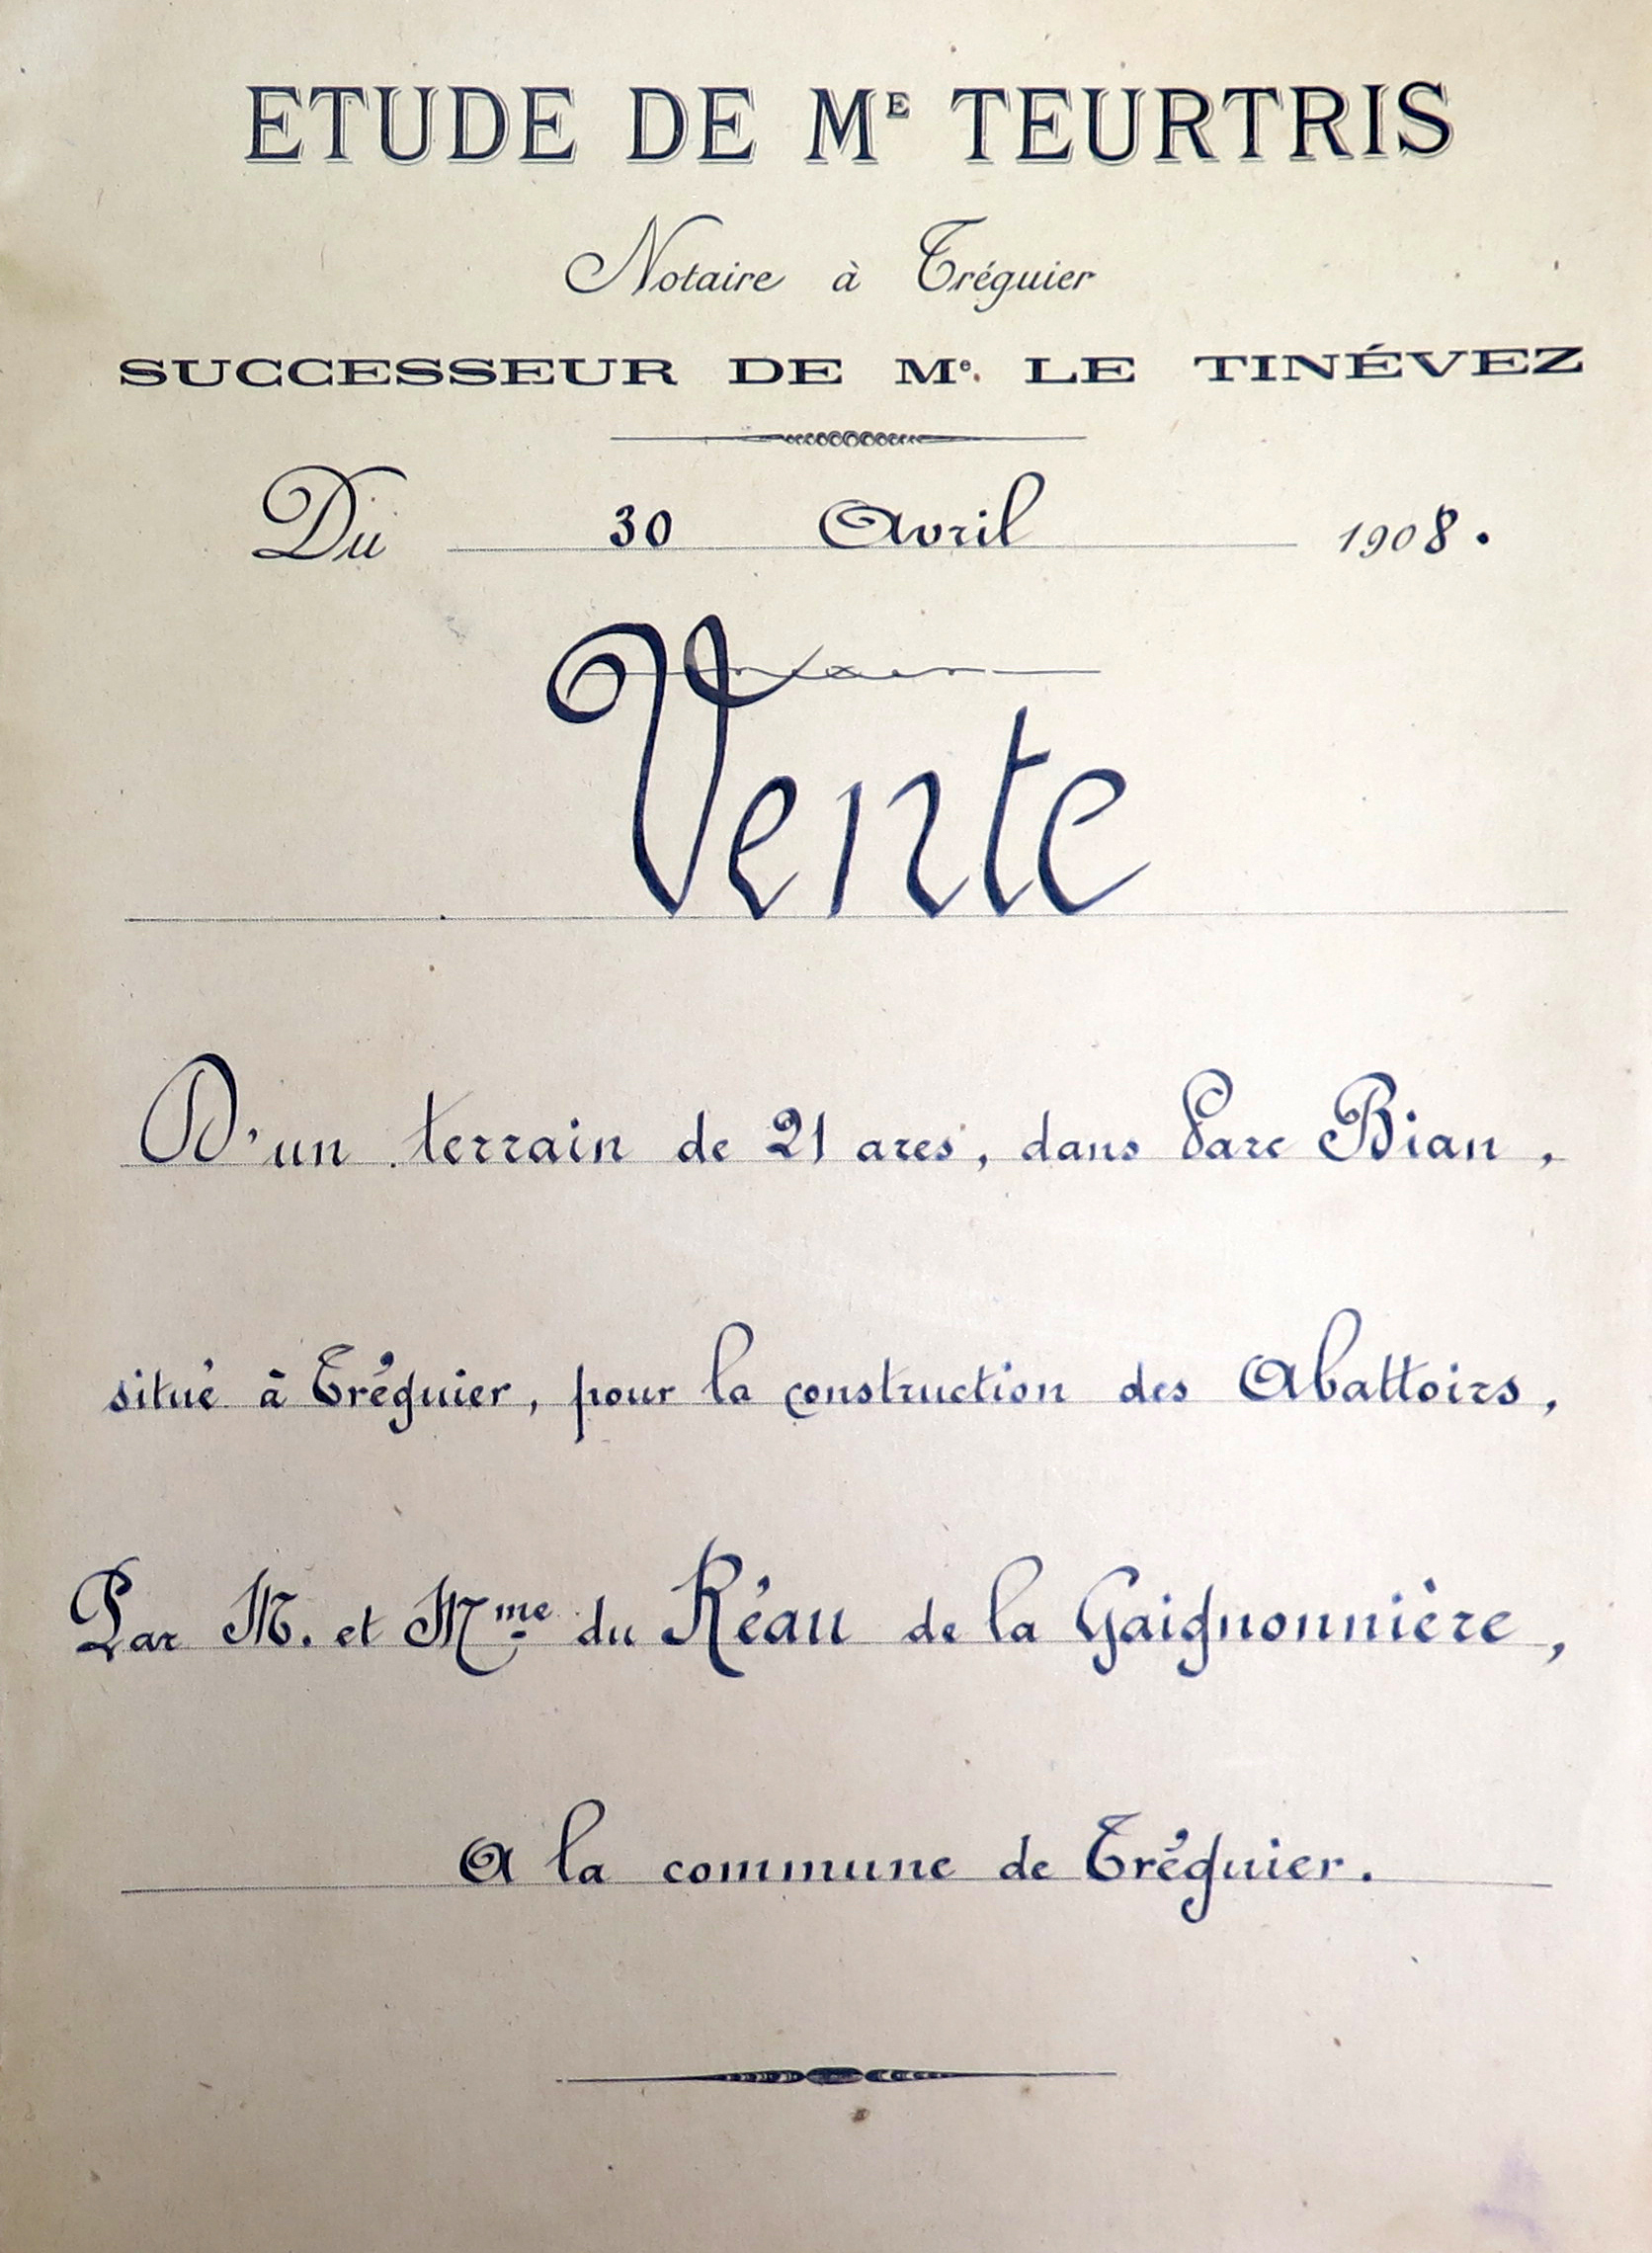 ETUDE DE ME TEURTRIS
Notaire à Tréguier
SUCCESSEUR DE Me. LE TINÉVEZ
Du 30 Avril 1908.
Vente
D'un terrain de 21 ares, dans Parc Bian,
situé à Tréguier, pour la construction des Abattoirs,
Par M. et Mme du Réau de la Gaignonnière,
A la commune de Tréguier.